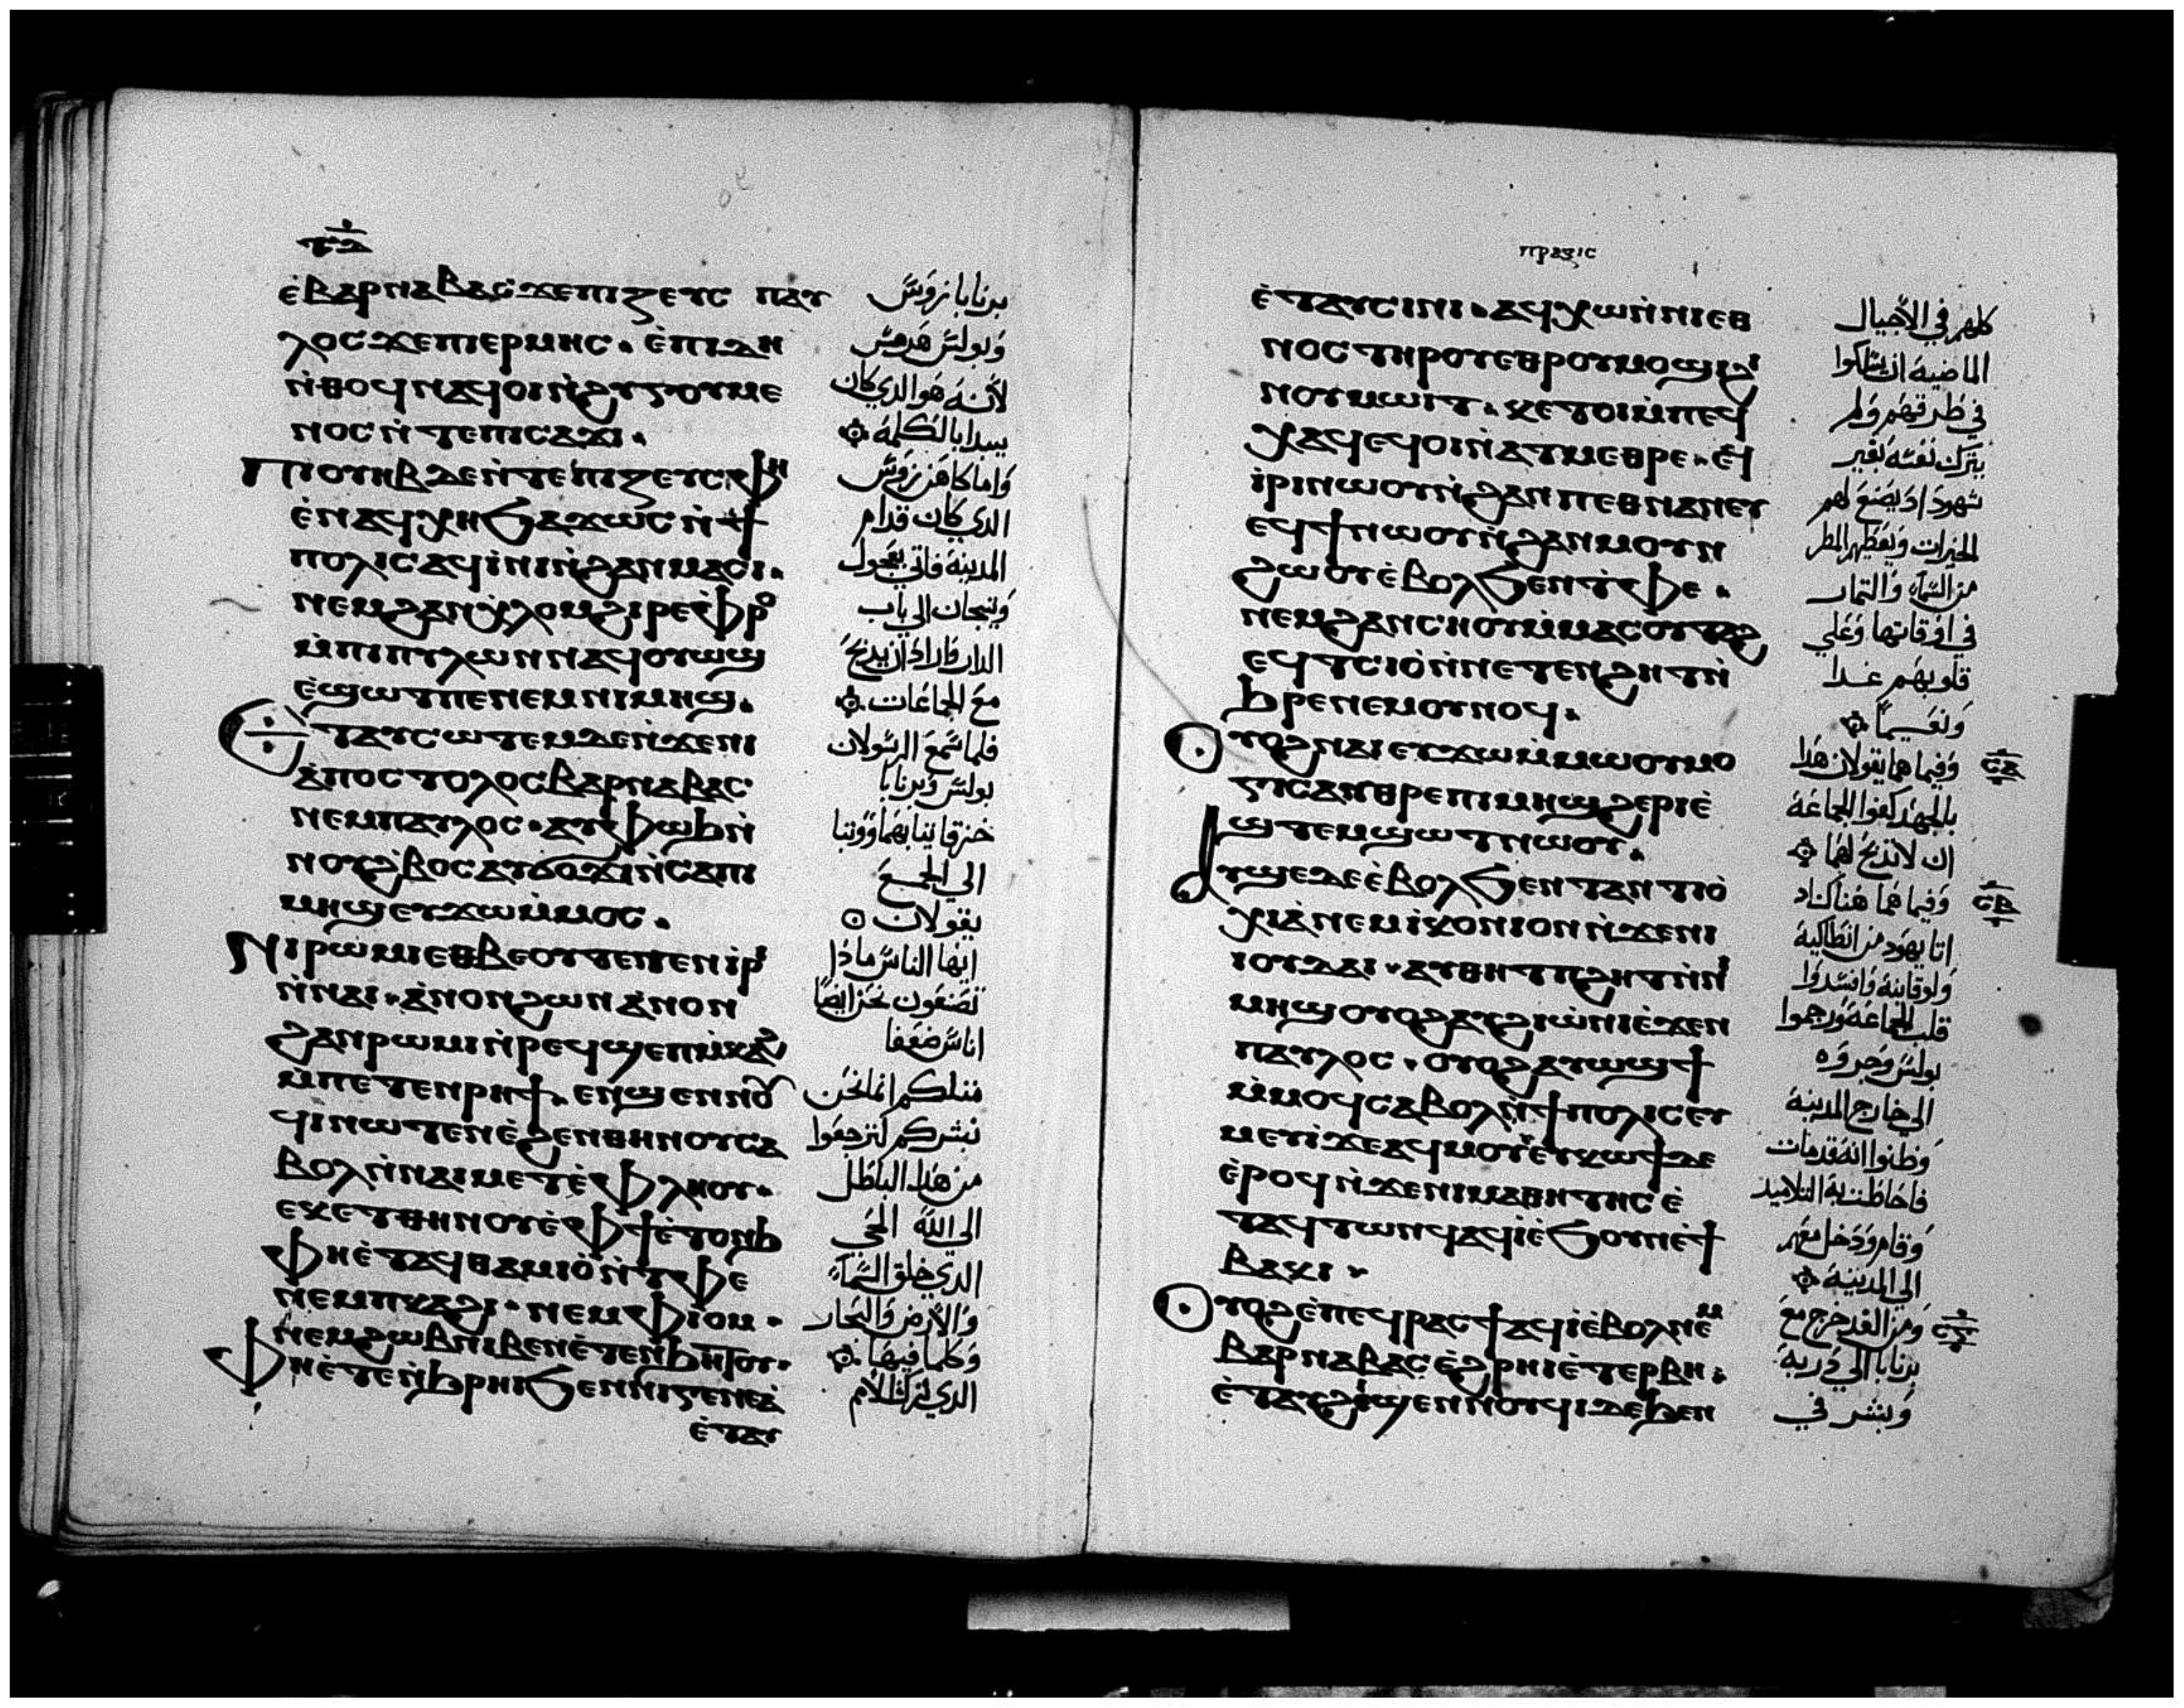 ⲧⲇ
ⲉ̀ⲃⲁⲣⲛⲁⲃⲁⲥ ϫⲉⲡⲓⲍⲉⲩⲥ ⲡⲁⲩ
ⲗⲟⲥ ϫⲉⲡⲓⲉⲣⲙⲏⲥ. ⲉ̀ⲡⲓⲇⲏ
ⲛ̀ⲑⲟϥ ⲛⲁϥⲟⲓⲛ̀ϩⲩⲅⲟⲩⲙⲉ
ⲛⲟⲥ ⲛ̀ⲧⲉⲡⲓⲥⲁϫⲓ.
Ⲡⲓⲟⲩⲏⲃ ⲇⲉ ⲛ̀ⲧⲉⲡⲓⲍⲉⲩⲥ ⲫⲏ
ⲉ̀ⲛⲁϥⲭⲏ ϧⲁϫⲱⲥ ⲛ̀ϯ
ⲡⲟⲗⲓⲥ ⲁϥⲓ̀ⲛⲓ ⲛ̀ϩⲁⲛⲙⲁⲥⲓ.
ⲛⲉⲙϩⲁⲛⲭ̀ⲗⲟⲙ ϩⲓⲣⲉⲛ ⲫⲣⲟ
ⲙ̀ⲡⲓⲡⲩⲗⲱⲛ ⲛⲁϥⲟⲩⲱϣ
ⲉ̀ϣⲱⲧ ⲡⲉ ⲛⲉⲙ ⲛⲓⲙⲏϣ.
Ⲉⲧⲁⲩⲥⲱⲧⲉⲙ ⲇⲉ ⲛ̀ϫⲉⲛⲓ
ⲁ̀ⲡⲟⲥⲧⲟⲗⲟⲥ ⲃⲁⲣⲛⲁⲃⲁⲥ
ⲛⲉⲙⲡⲁⲩⲗⲟⲥ. ⲁⲩⲫⲱϧ ⲛ̀
ⲛⲟⲩϩ̀ⲃⲟⲥ ⲁⲩϭⲟϫⲓ ⲛ̀ⲥⲁⲡⲓ
ⲙⲏϣ ⲉⲩϫⲱ ⲙ̀ⲙⲟⲥ.
Ⲛⲓⲣⲱⲙⲓ ⲉⲑⲃⲉⲟⲩ ⲧⲉⲧⲉⲛⲓ̀ⲣⲓ
ⲛ̀ⲛⲁⲓ. ⲁ̀ⲛⲟⲛ ϩⲱⲛ ⲁ̀ⲛⲟⲛ
ϩⲁⲛⲣⲱⲙⲓ ⲛ̀ⲣⲉϥϣⲉⲡⲙ̀ⲕⲁϩ
ⲙ̀ⲡⲉⲧⲉⲛⲣⲏϯ. ⲉⲛϣⲉⲛⲛⲟⲩ
ϥⲓ ⲛⲱⲧⲉⲛ ⲉ̀ϩⲉⲛⲑⲏⲛⲟⲩ ⲥⲁ
ⲃⲟⲗ ⲛ̀ⲛⲁⲓⲙⲉⲧⲉ̀ⲫⲗⲏⲟⲩ.
ⲉⲕⲉⲧⲑⲏⲛⲟⲩ ⲉ̀ⲫϯ ⲉ̀ⲧⲟⲛϧ
ⲫⲏⲉ̀ⲧⲁϥⲑⲁⲙⲓⲟ̀ ⲛ̀ⲧⲫⲉ
ⲛⲉⲙⲡⲕⲁϩⲓ. ⲛⲉⲙⲫⲓⲟⲙ.
ⲛⲉⲙϩⲱⲃ ⲛⲓⲃⲉⲛ ⲉ̀ⲧⲉⲛϧⲏⲧⲟⲩ.
Ⲫⲏⲉ̀ⲧⲉⲛ̀ϧⲣⲏⲓ ϧⲉⲛⲛⲓⲅⲉⲛⲉⲁ̀
ⲉ̀ⲧⲁⲩ
برنابا زوس
وبولس هرمس
لانه هو الدي كان
يبدا بالكلمه
واما كاهن زوس
الدي كان قدام
المدينه فاتي بعجول
وتيجان الي باب
الدار واراد ان يدبح
مع الجماعات
فلما سمع الرسولان
بولس وبرنابا
خرقا ثيابهما ووثبا
الي الجمع
يقولان
ايها الناس مادا
تصنعون نحن ايضا
اناس ضعفا
مثلكم انما نحن
نبشركم لترجعوا
من هدا الباطل
الي الله الحي
الدي خلق السماء
والارض والبحار
وكلما فيها
الدي ترك الامم
ⲡⲣⲁⲝⲓⲥ
ⲉ̀ⲧⲁⲩⲥⲓⲛⲓ. ⲁϥⲭⲱ ⲛ̀ⲛⲓⲉⲑ
ⲛⲟⲥ ⲧⲏⲣⲟⲩ ⲉⲑⲣⲟⲩⲙⲟϣⲓ ϩⲓ
ⲛⲟⲩⲙⲱⲓⲧ. ⲕⲉⲧⲟⲓ ⲙ̀ⲡⲉϥ
ⲭⲁϥ ⲉϥⲟⲓ ⲛ̀ⲁⲧⲙⲉⲑⲣⲉ. ⲉϥ
ⲓ̀ⲣⲓ ⲛⲱⲟⲩ ⲛ̀ϩⲁⲛⲡⲉⲑⲛⲁⲛⲉⲩ
ⲉϥϯ ⲛⲱⲟⲩ ⲛ̀ϩⲁⲛⲙⲟⲩⲛ
ϩⲱⲟⲩ ⲉ̀ⲃⲟⲗ ϧⲉⲛⲧ̀ⲫⲉ.
ⲛⲉⲙϩⲁⲛⲥⲏⲟⲩ ⲙ̀ⲙⲁⲥⲟⲩⲧⲁϩ
ⲉϥⲧⲥⲓⲟ̀ ⲛ̀ⲛⲉⲧⲉⲛϩⲏⲧ ⲛ̀
ϧⲣⲉ ⲛⲉⲙⲟⲩⲛⲟϥ.
Ⲟⲩⲟϩ ⲛⲁⲓ ⲉⲩϫⲱ ⲙ̀ⲙⲱⲟⲩ ⲙⲟ
ⲅⲓⲥ ⲁⲩⲑⲣⲉⲡⲓⲙⲏϣ ϩⲉⲣⲓ ⲉ̀
ϣⲧⲉⲙϣⲱⲧ ⲛⲱⲟⲩ.
Ⲁⲩϣⲉ ⲇⲉ ⲉ̀ⲃⲟⲗ ϧⲉⲛⲧⲁⲛⲧⲓⲟ̀
ⲭⲓⲁ̀ ⲛⲉⲙⲓⲕⲟⲛⲓⲟⲛ ⲛ̀ϫⲉⲛⲓ
ⲓⲟⲩⲇⲁⲓ. ⲁⲩⲑⲏⲧⲡϩⲏⲧ ⲛ̀ⲛⲓ
ⲙⲏϣ ⲟⲩⲟϩ ⲁⲩϩⲓⲱ̀ⲛⲓ ⲉ̀ϫⲉⲛ
ⲡⲁⲩⲗⲟⲥ. ⲟⲩⲟϩ ⲁⲩⲱϣϯ
ⲙ̀ⲙⲟϥ ⲥⲁⲃⲟⲗ ⲛ̀ϯⲡⲟⲗⲓⲥ ⲉⲩ
ⲙⲉⲩⲓ̀ ϫⲉⲁϥⲙⲟⲩ ⲉ̀ⲧⲩⲕⲱϯ ⲇⲉ
ⲉ̀ⲣⲟϥ ⲛ̀ϫⲉⲛⲓⲙⲁⲑⲏⲧⲏⲥ ⲉ̀
ⲧⲁϥⲧⲱⲛϥ ⲁϥⲓ̀ ⲉ̀ϧⲟⲩⲛ ⲉ̀ϯ
ⲃⲁⲕⲓ.
Ⲟⲩⲟϩ ⲉ̀ⲡⲉϥⲣⲁⲥϯ ⲁϥⲓ̀ ⲉ̀ⲃⲟⲗ ⲛⲉⲙ
ⲃⲁⲣⲛⲁⲃⲁⲥ ⲉ̀ϩⲣⲏⲓ ⲉ̀ⲧⲉⲣⲃⲏ.
ⲉ̀ⲧⲁⲩϩⲓϣⲉⲛⲛⲟⲩϥⲓ ⲇⲉ ϧⲉⲛ
كلهم في الاجيال
الماضيه ان يسلكوا
في طرقهم ولم
يترك نفسه بغير
شهود اد يصنع لهم
الخيرات ويعطيهم المطر
من السماء والتمار
في اوقاتها وعلي
قلوبهم غدا
ونعيما
وفيما هما يقولان هدا
بالجهد كفوا الجماعه
ان لا تدبح لهما
وفيما هما هناك اد
اتا يهود من انطاكيه
ولوقانيه وافسدوا
قلب الجماعه ورجموا
بولس وجروه
الي خارج المدينه
وظنوا انه قد مات
فاحاطت به التلاميد
وقام ودخل معهم
الي المدينه
ومن الغد خرج مع
برنابا الي دربه
وبشر في
ⲥⲁ
ⲥⲃ
ⲥⲅ